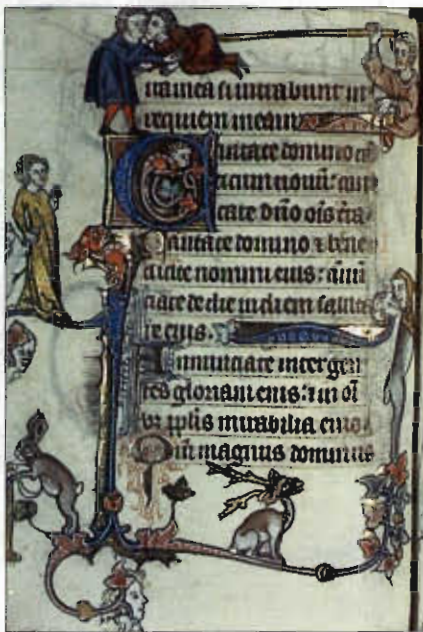 uia mea si intrabunt in
requiem meam
Cantate domino ca
ticum nouu: can
tate dno ois tra
Cantate domino & bene
dicite nomini eius: annu
ciate de die in diem saluta
re eius.
Annunciate inter gen
tes gloriam eius: in oi
bz pplis mirabilia eius
Qm magnus dominus